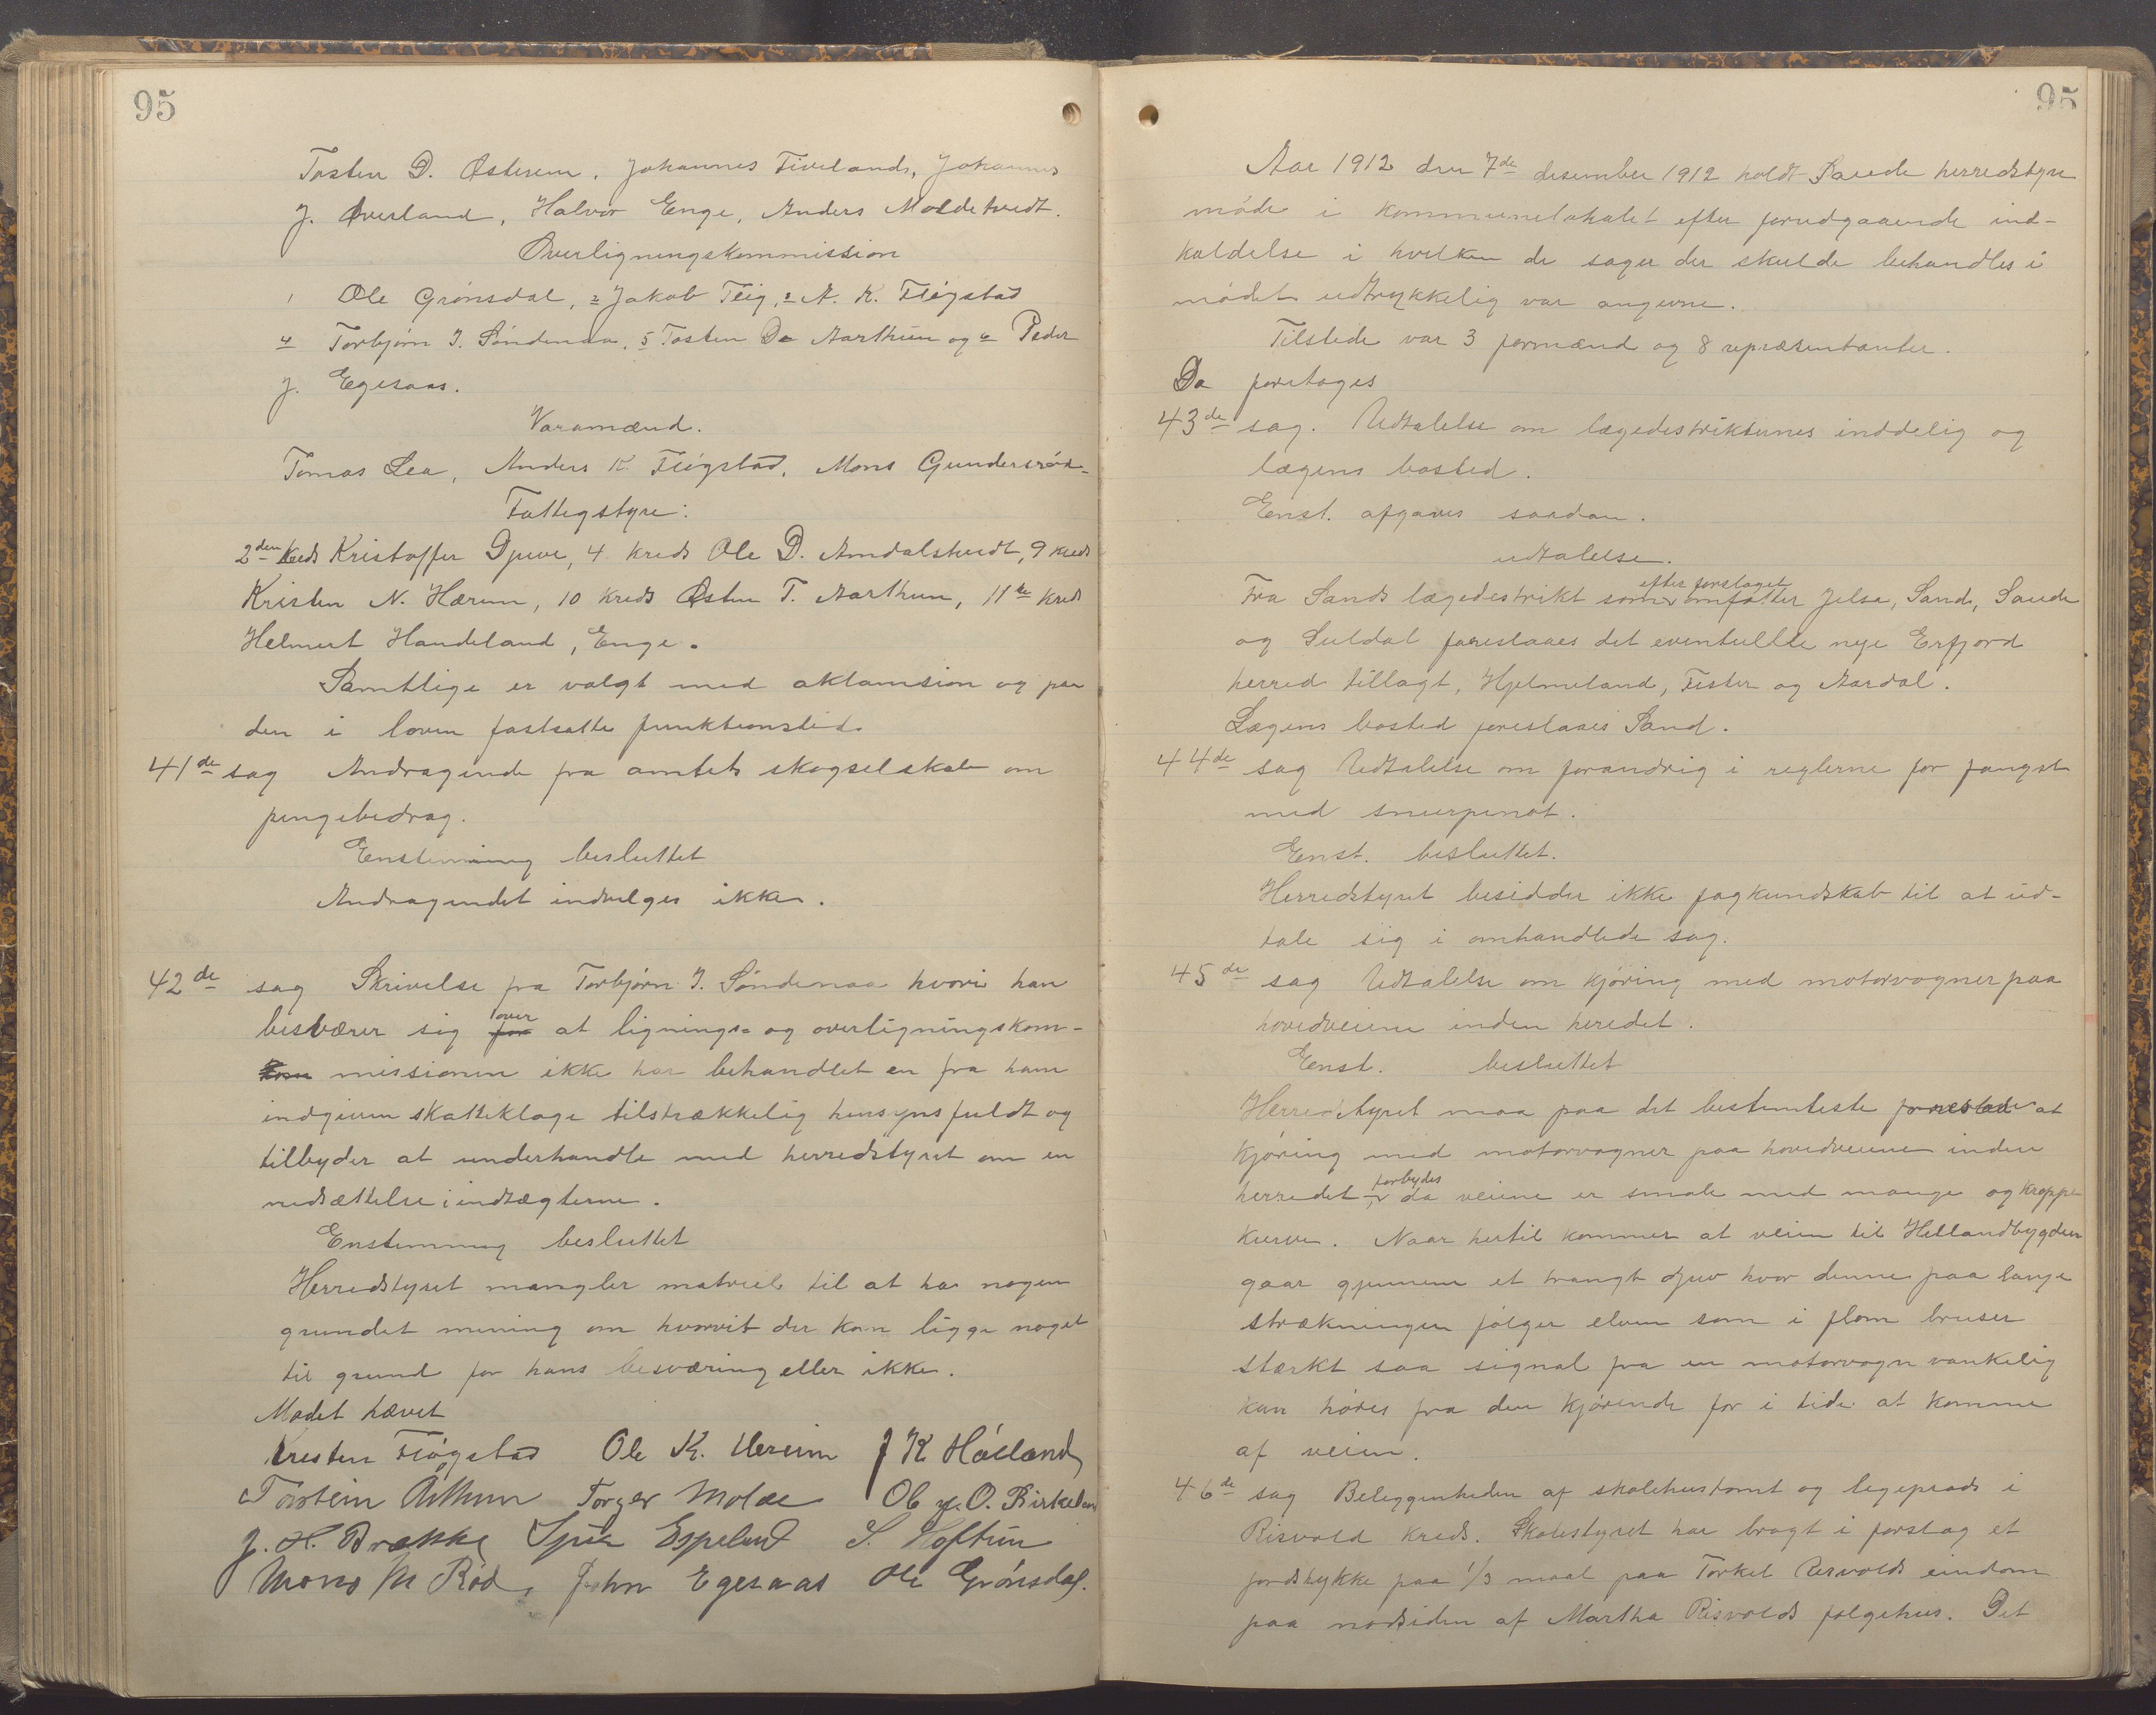 95
Tosten D. Østerem, Johannes Tivelands, Johannes
J. Øverland, Halvor Enge, Anders Moldetvedt.
Overligningskommission
1 Ole Grønsdal, 2 Jakob Teig, 3 A. K. Fløgstad
4 Torbjørn I. Søndenaa, 5 Tosten D. Aarthun og 6 Peder
J. Egesaas.
Varamænd.
Tomas Lea, Anders K. Fløgstad, Mons Gundersrød
Fattigstyre:
2den kreds Kristoffer Djuve, 4 kreds Ole D. Amdalstvedt, 9 kreds
Kristen N. Hærem, 10 kreds Østen T. Aarthun, 11te kreds
Helmert Handeland, Enge.
Samtlige er valgt med aklamsion og paa
den i loven fastsatte funktionstid.
41de sag Andragende fra amtets skogselskab om
pengebedrag.
Enstemmig besluttet
Andragendet indvilges ikke.
42de sag Skrivelse fra Torbjørn I. Søndenaa hvori han
besværer sig for over at lignings- og overligningskom-
kom missionen ikke har behandlet en fra ham
indgiven skatteklage tilstrækkelig hensynsfuldt og
tilbyder at underhandle med herredstyret om en
nedsættelse i indtægterne.
Enstemmig besluttet
Herredstyret mangler matriel til at ha nogen
grundet mening om hvorvit der kan ligge noget
til grund for hans besværing eller ikke.
Mødet hævet
Kresten Fløgstad Ole K. Hereim J K Hålland
Torstein Årthun Torger Molde Ole O. Birkeland
J. H. Brække Espeland S. Hoftun
Mons M Rød, John Egesaas Ole Grønsdal.
95
Aar 1912 den 7de desember 1912 holdt Saude herredstyre
møde i kommunelokalet efter forudgaaende ind-
kaldelse i hvilken de sager der skulde behandles i
mødet udtrykkelig var angivne.
Tilstede var 3 formænd og 8 repræsentanter.
Da foretoges
43de sag. Udtalelse om lægedestriktenes inddelig og
lægens bosted.
Enst. afgaves saadan.
udtalelse.
Fra Sands lægedestrikt som efter forslaget omfatter Jelsa, Sand, Saude
og Suldal foreslaaes det eventuelle nye Erfjord
herred tillagt, Hjelmeland, Fister og Aardal.
Lægens bosted foreslaaes Sand.
44de sag Udtalelse om forandrig i reglerne for fangst
med snurpenot.
Enst. besluttet.
Herredstyret besidder ikke fagkundskab til at ud-
tale sig i omhandlede sag.
45de sag Udtalelse om kjøring med motorvogner paa
hovedveiene inden heredet.
Enst. besluttet
Herredstyret maa paa det bestemteste foreslaa at
kjøring med motorvogner paa hovedveiene inden
herredet forbydes da veiene er smale med mange og kroppe
kurver. Naar hertil kommer at veien til Hellandbygden
gaar gjennem et trangt djuv hvor denne paa lange
strækninger følger elven som i flom bruser
stærkt saa signal fra en motorvogn vankelig
kan høres fra den kjørende for i tide at komme
af veien.
46de sag Beliggenheden af skolehustomt og legeplads i
Risvold kreds. Skolestyret har bragt i forslag et
jordstykke paa 1/3 maal paa Torkel Risvolds eindom
paa nordsiden af Martha Risvolds følgehus. Det